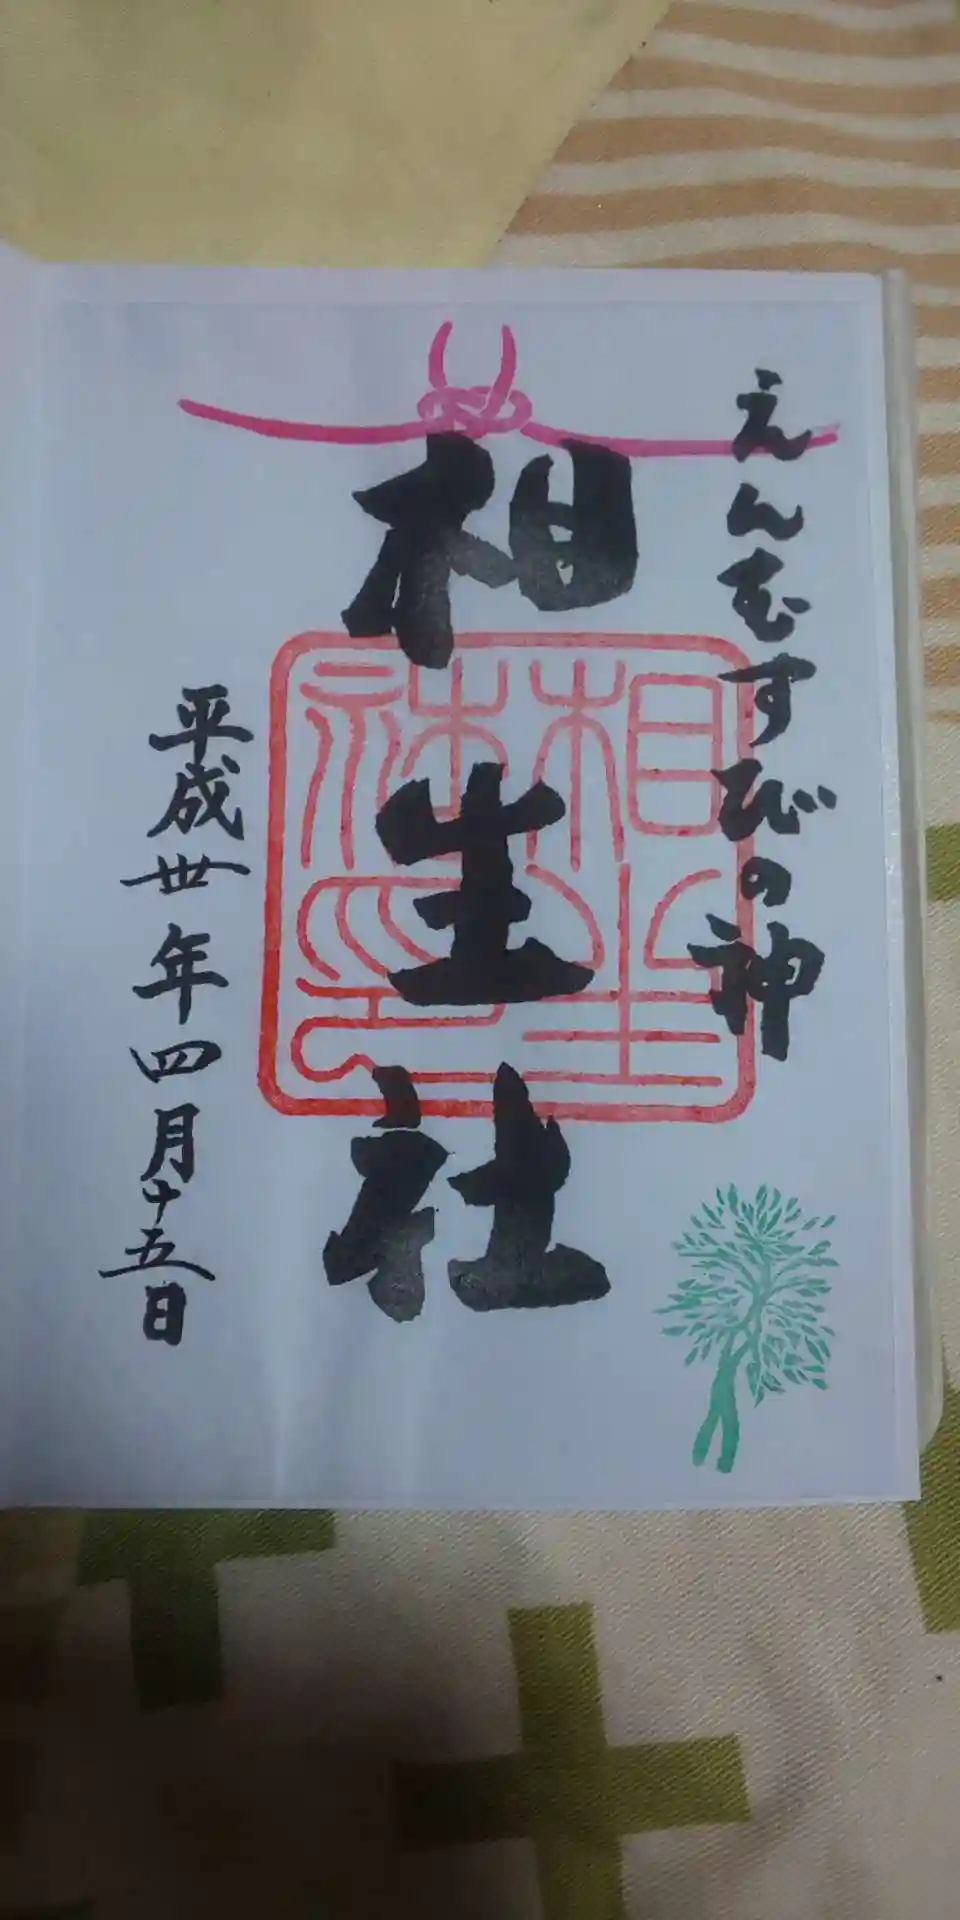 えんむすびの神
相生社
相生社印
平成卅年四月十五日